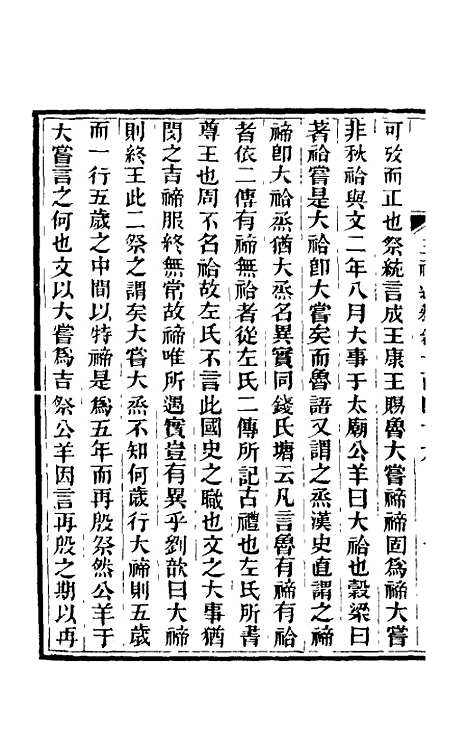 可攷而正也祭統言成王康王賜魯大嘗禘禘固為禘大嘗
非秋祫與文二年八月大事于太廟公羊曰大祫也穀梁曰
著祫嘗是大祫卽大嘗矣而魯語又謂之烝漢史直謂之禘
禘卽大祫烝猶大烝名異實同錢氏塘云凡言魯有禘有祫
者依二傳有禘無祫者從左氏二傳所記古禮也左氏所書
尊王也周不名祫故左氏不言此國史之職也文之大事猶
閔之吉禘服終無常故禘唯所遇實豈有異乎劉歆曰大禘
則終王此二祭之謂矣大嘗大烝不知何歲行大禘則五歲
而一行五歲之中間以特禘是為五年而再殷祭然公羊于
大嘗言之何也文以大嘗為吉祭公羊因言再殷之期以再